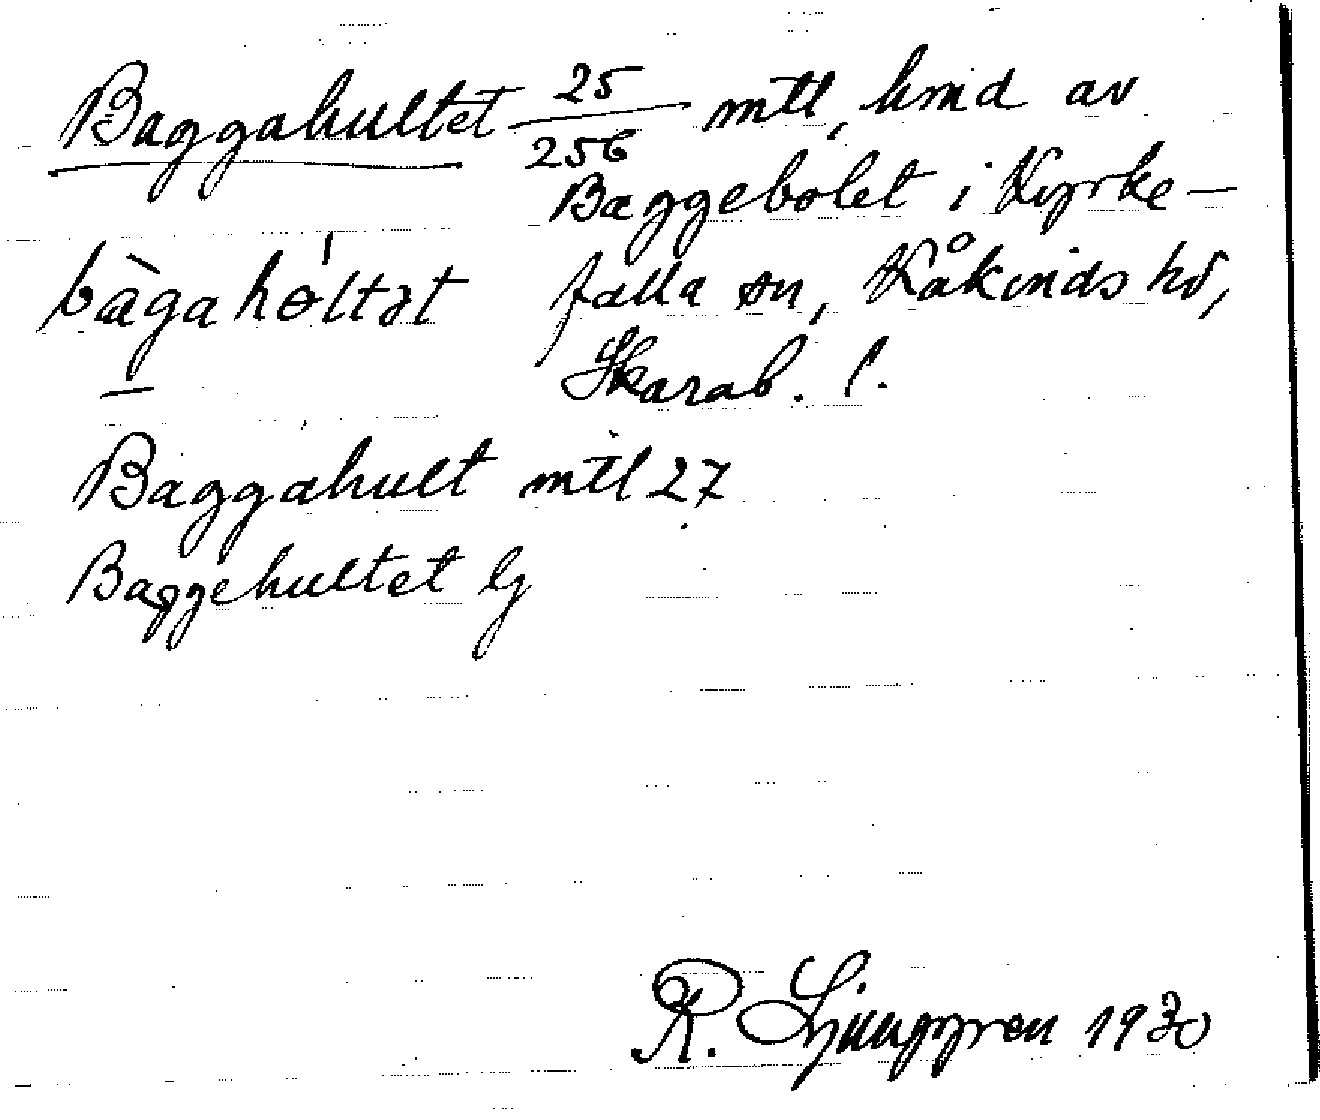 Baggahultet 25/256 mtl, hmd av
Baggebolet i Kyrke-
bàgahól̀tət falla sn, Kåkinds hd,
Skarab. l.
Baggahult mtl 27
Baggehultet lg
R. Ljunggren 1930